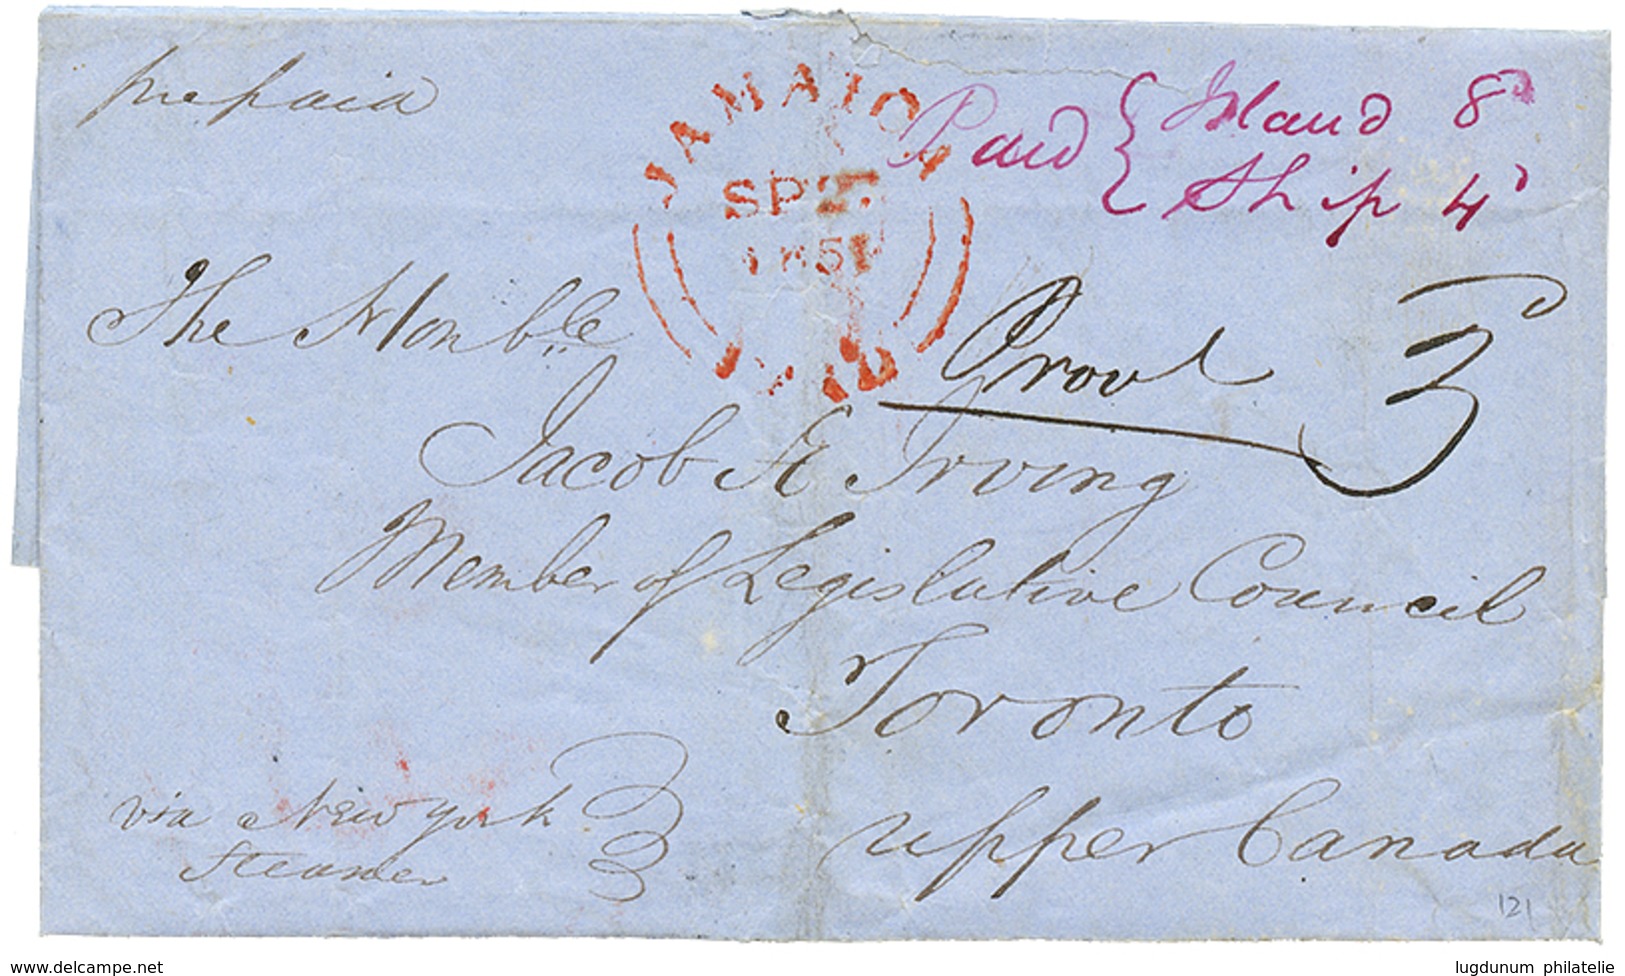 prepaid
JAMAICA
SP 2
1851
PAID
Paid { Island 8d
Ship 4d
The Honble
Provl 3d
Jacob Æ Irving
Member of Legislative Council
Toronto
via New York
Steamer
Upper Canada
121
delcampe.net
lugdunum philatelie